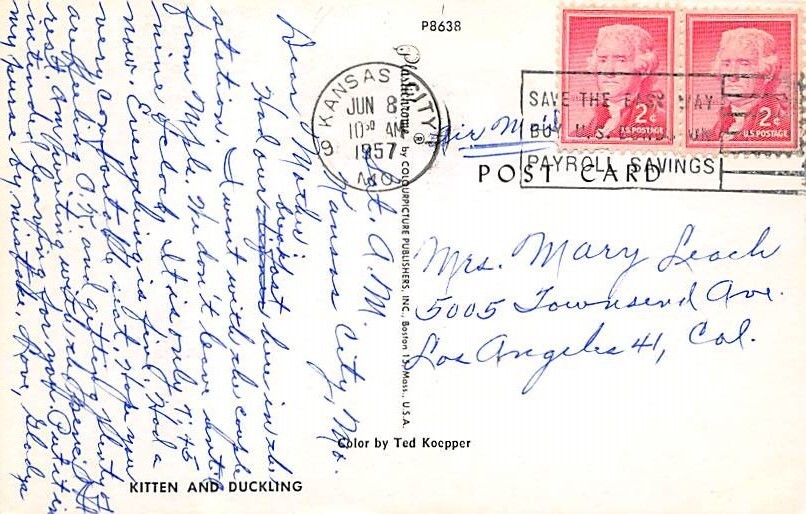 P8638
Kansas City, Mo.
Sat. A.M.
Dear Mother,
Had our breakfast here in the
station. I went with the couple
from Mpls. We don't leave until
nine o'clock. It is only 7:45
now. Everything is fine. Had a
very comfortable seat. Hope you
are feeling O.K. and getting plenty of
rest. Am writing with the pencil I
intended leaving for you. Put it in
my purse by mistake. Love, Gladys
KITTEN AND DUCKLING
Plastichrome ® by COLOURPICTURE PUBLISHERS, INC., Boston 15, Mass., U.S.A.
Color by Ted Koepper
KANSAS CITY
9
JUN 8
10 30 AM
1957
MO.
SAVE THE EASY WAY
BUY U.S. BONDS ON
PAYROLL SAVINGS
2¢
U.S. POSTAGE
2¢
U.S. POSTAGE
Air Mail
POST CARD
Mrs. Mary Leach
5005 Townsend Ave.
Los Angeles 41, Cal.